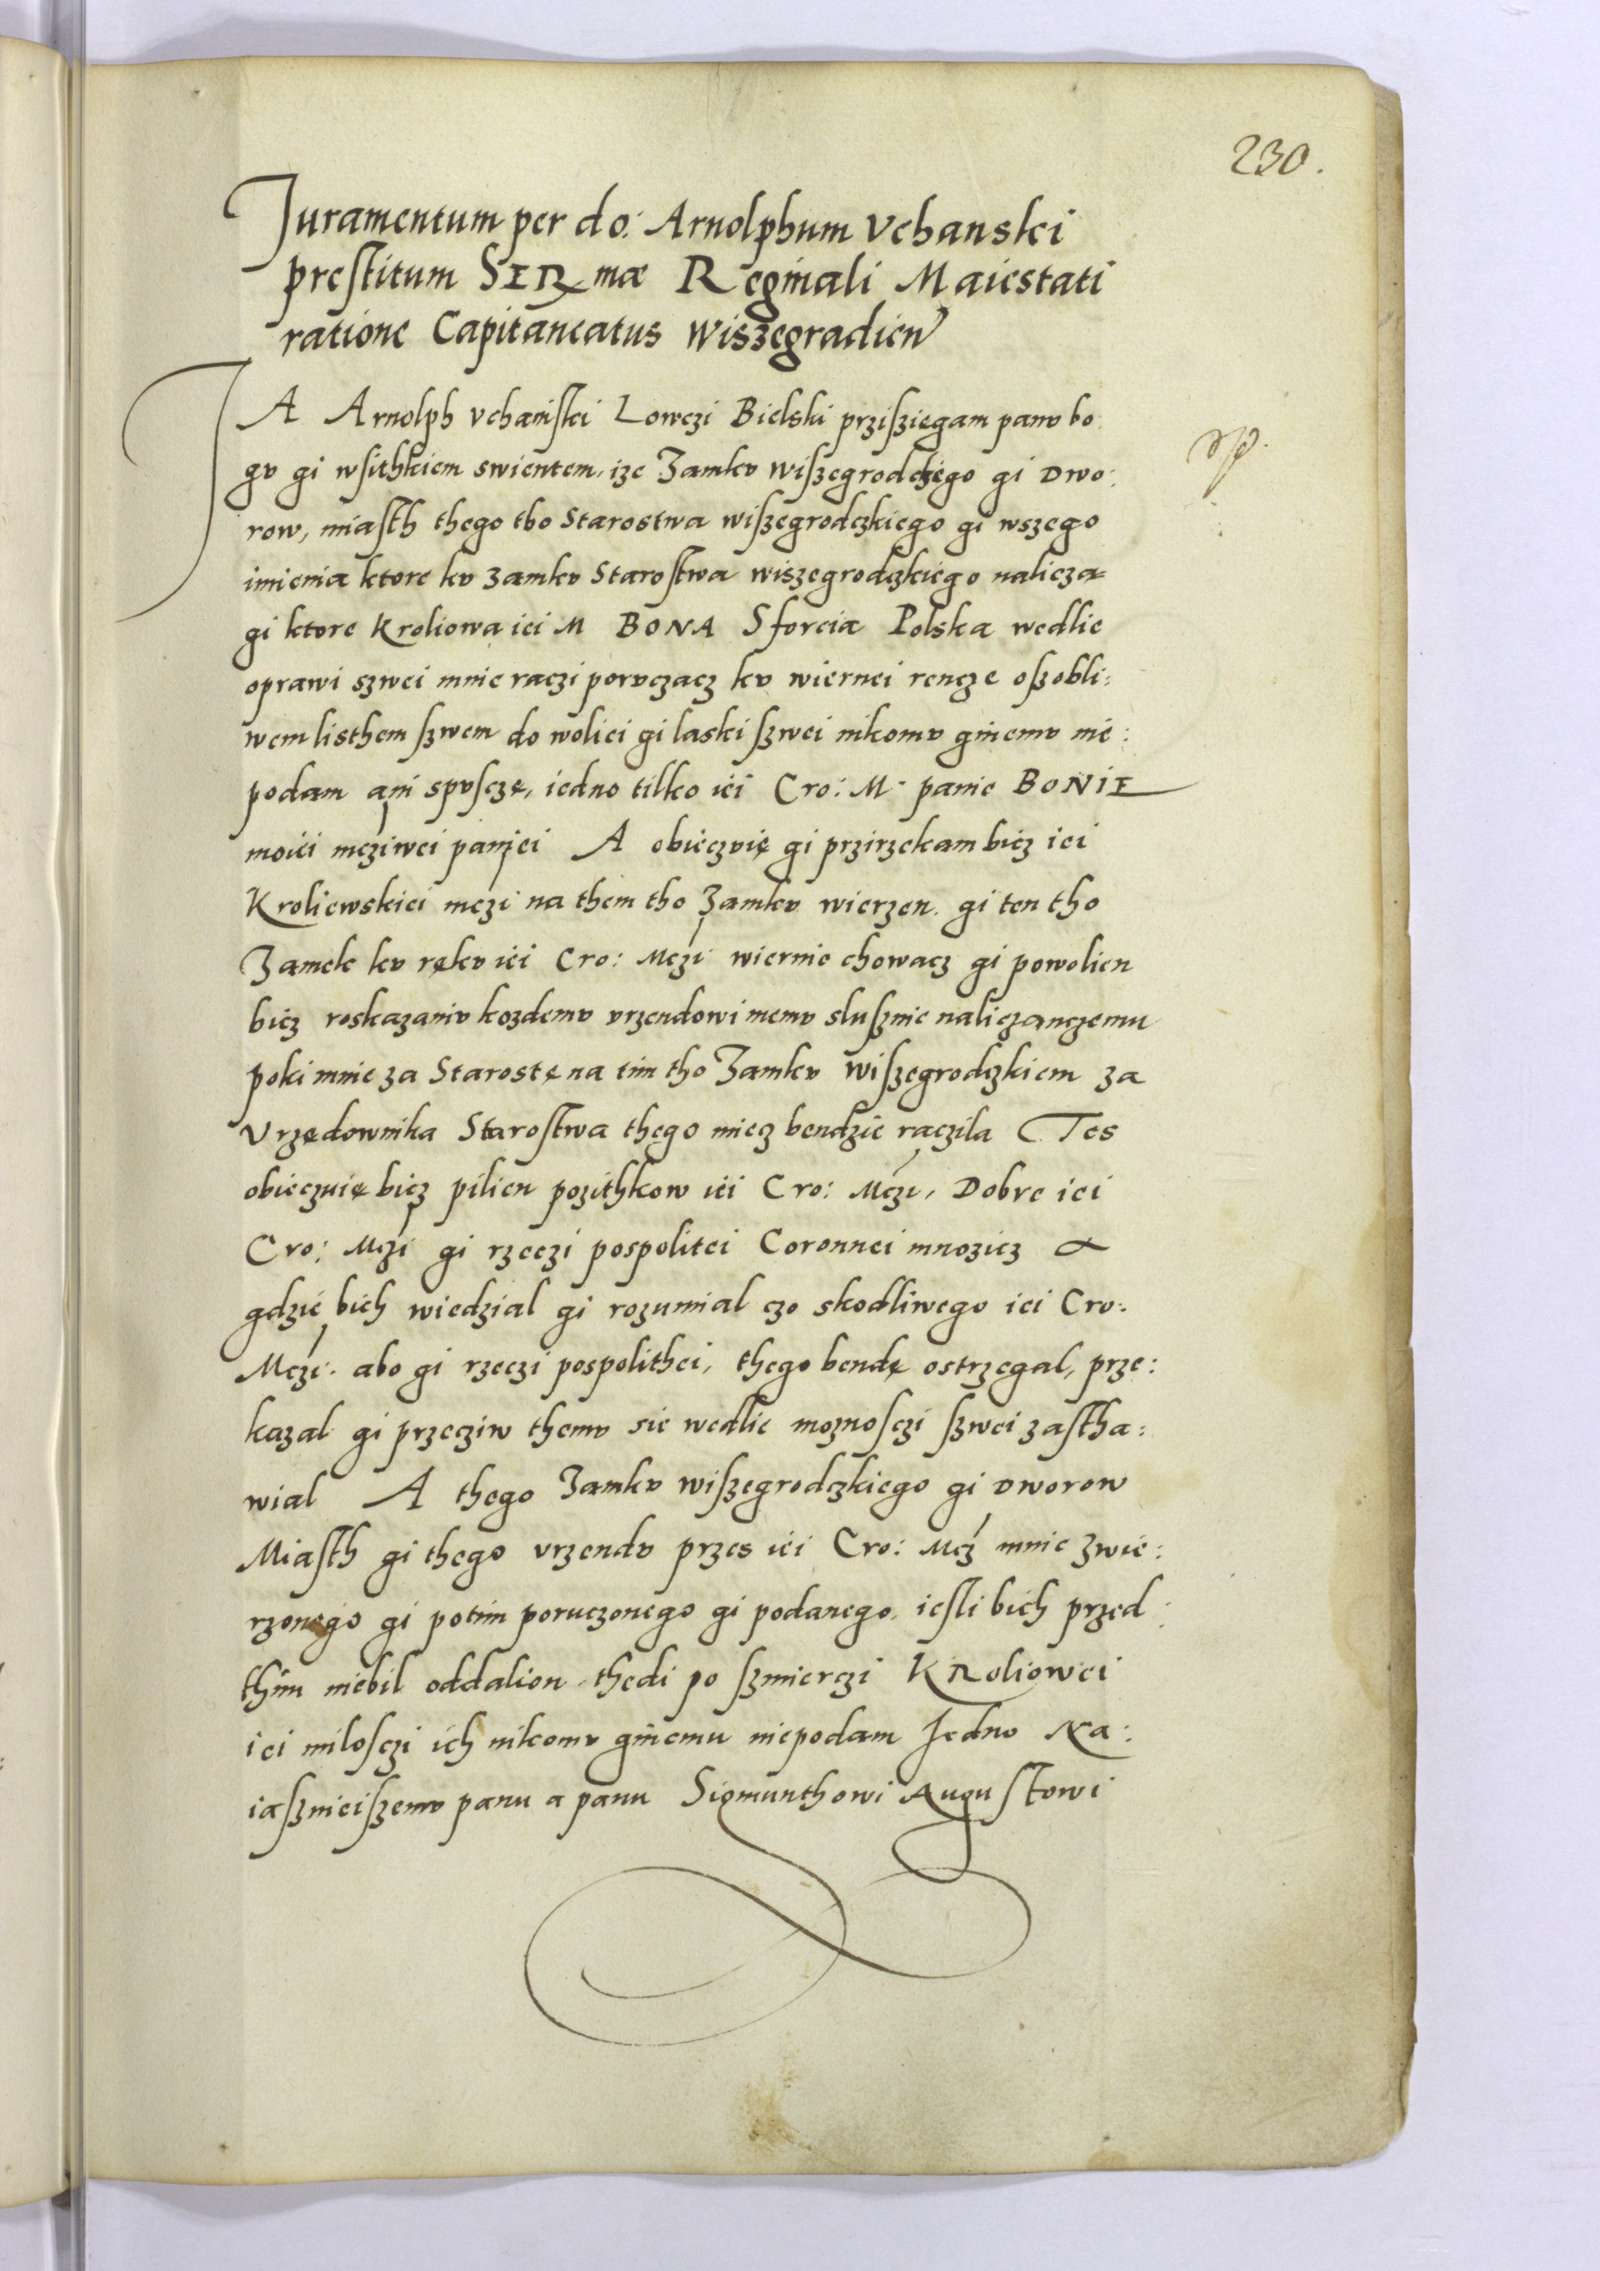 230.
Juramentum per do: Arnolphum Vchanski
prestitum SERmæ Reginali Maiestati
ratione Capitaneatus Wiszegradien
JA Arnolph Vchański Lowczi Bielski prziszięgam panv bo
gv gi wsithkiem swientem, ize Zamkv wiszegrodczkiego gi Dwo:
row, miasth thego tho Starostwa wiszegrodczkiego gi wszego
imienia ktore kv zamkv Starostwa wiszegrodczkiego nalicza=
gi ktore Kroliowa iei M BONA Sforcia Polska wedlie
oprawi szwei mnie raczi porvczacz kv wiernei rencze oszobli:
wem listhem szwem do woliei gi laski szwei nikomv ginemv nie:
podam ani spvsczę, iedno tilko iei Cro: M. panie BONIE
moiei mcziwei paniei A obieczvię gi przirzekam bicz iei
Kroliewskiei mczi na them tho Zamkv wierzen. gi ten tho
Zamek kv rękv iei Cro: Mczi wiernie chowacz gi powolien
bicz roskazaniv kozdemv vrzendowi memv slusznie naliczanczemu
poki mnie za Starostę na tim tho Zamkv Wiszegrodczkiem za
Vrzędownika Starostwa thego miecz bendzie raczila Tes
obieczuię bicz pilien pozithkow iei Cro: Mczi, Dobre iei
Cro: Mczi gi rzeczi pospolitei Coronnei mnozicz A
gdzie bich wiedzial gi rozumial czo skodliwego iei Cro:
Mczi. abo gi rzeczi pospolithei, thego bendę ostrzegal, prze:
kazal gi przecziw themv sie wedlie moznosczi szwei zastha:
wial A thego Zamkv wiszegrodczkiego gi Dworow
Miasth gi thego vrzendv przes iei Cro: Mcz mnie zwie:
rzonego gi potim poruczonego gi podanego. iesli bich przed
thim niebil oddalion, thedi po szmierczi KRoliowei
iei milosczi ich nikomv ginemu niepodam Jedno Na:
iasznieiszemv panu a panu Sigmunthowi Augustowi